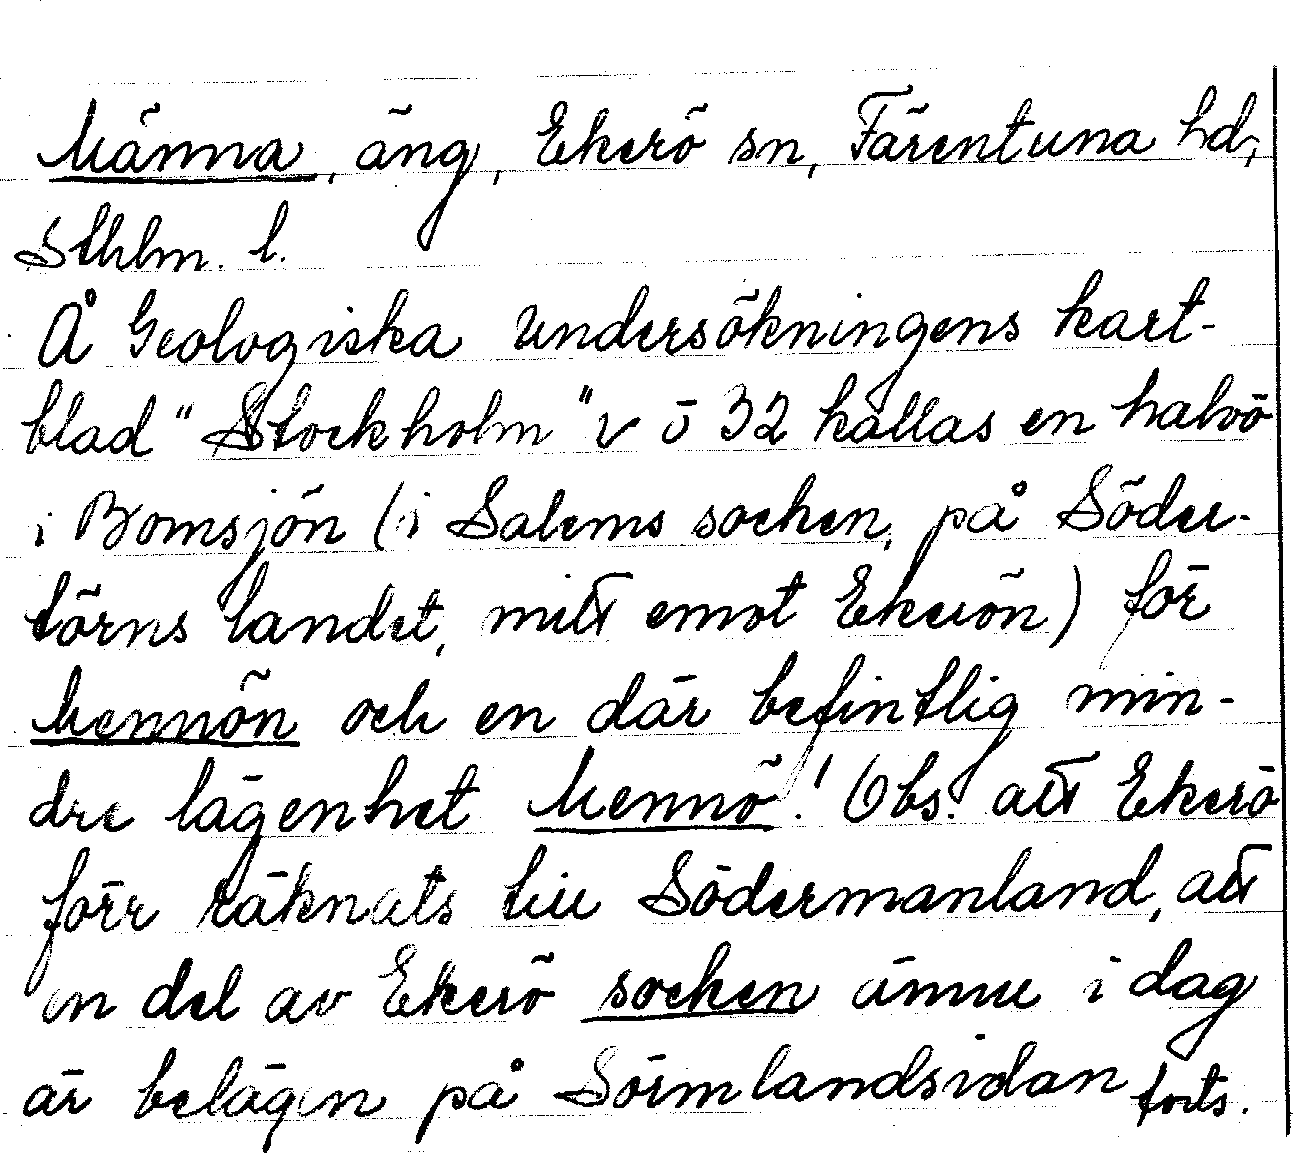 Männa, äng, Ekerö sn, Färentuna hd,
Sthlm. l.
Å Geologiska undersökningens kart-
blad "Stockholm" v ö 32 kallas en halvö
i Bornsjön (i Salems socken, på Söder-
törns landet, mitt emot Ekerön) för
Mennön och en där befintlig min-
dre lägenhet Mennö! Obs. att Ekerö
förr räknats till Södermanland, att
en del av Ekerö socken ännu i dag
är belägen på Sörmlandsidan forts.